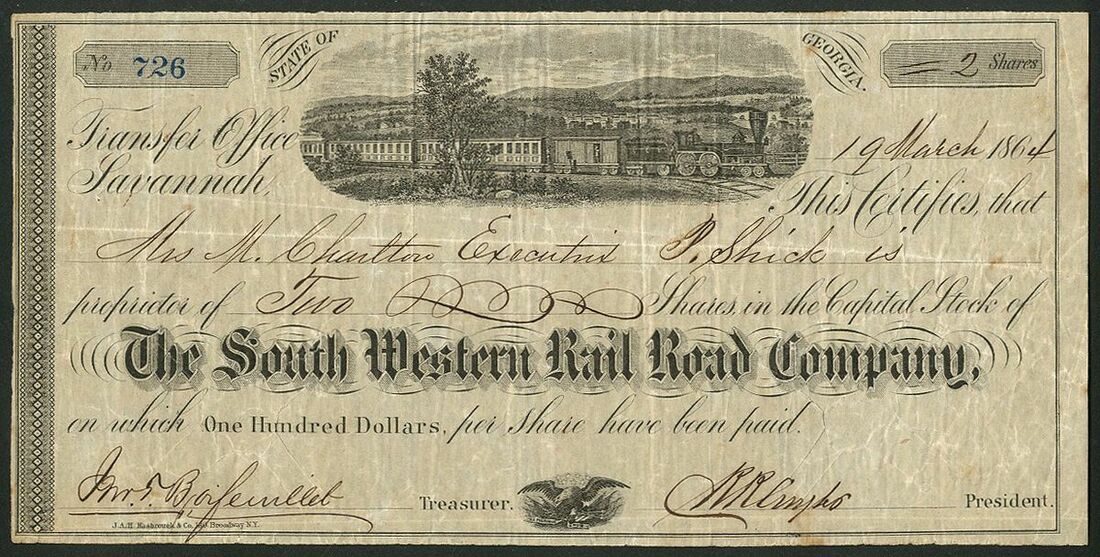 No 726
STATE OF GEORGIA.
= 2 Shares
Transfer Office
Savannah,
19 March 1864
This Certifies, that
Mrs M. Charlton Executrix P. Shick is
proprietor of Two Shares, in the Capital Stock of
The South Western Rail Road Company,
on which One Hundred Dollars, per share have been paid.
Treasurer.
President.
J.A.H. Hasbrouck & Co. Broadway N.Y.